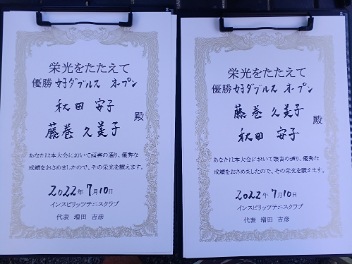 栄光をたたえて
優勝 女子ダブルス オープン
秋田 安子
藤巻 久美子
殿
あなたは本大会において頭書の通り、優秀な
成績をおさめましたので、その栄光を讃えます。
2022年7月10日
インスピリッツテニスクラブ
代表 増田 吉彦
栄光をたたえて
優勝 女子ダブルス オープン
藤巻 久美子
秋田 安子
殿
あなたは本大会において頭書の通り、優秀な
成績をおさめましたので、その栄光を讃えます。
2022年7月10日
インスピリッツテニスクラブ
代表 増田 吉彦